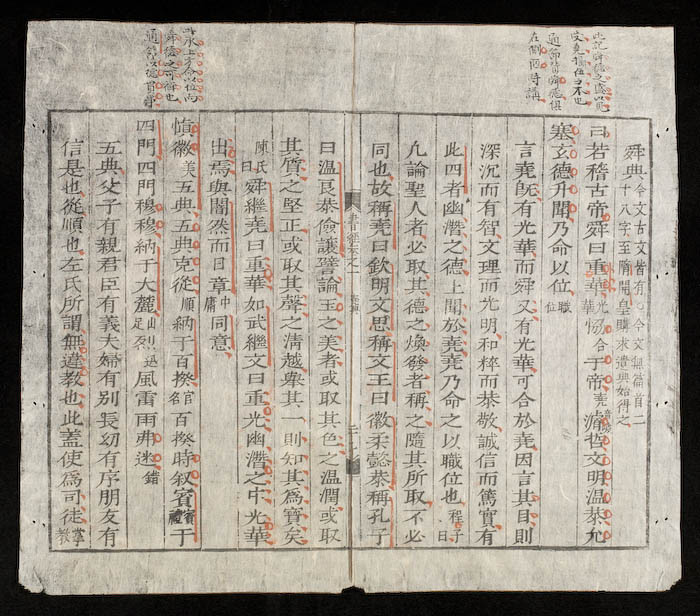 在側陋時講
舜典今文古文皆有○今文無篇首二
十八字至隋開皇購求遺典始得之
曰若稽古帝舜曰重華光華恊合于帝堯濬哲文明温恭允
塞玄德升聞乃命以位職位
言堯既有光華而舜又有光華可合於堯因言其目則
深沉而有智文理而光明和粹而恭敬誠信而篤實有
此四者幽潛之德上聞於堯堯乃命之以職位也程子曰
凡論聖人者必取其德之煥發者稱之隨其所取不必
同也故稱堯曰欽明文思稱文王曰徽柔懿恭稱孔子
書經卷之一
曰温良恭儉讓譬論玉之美者或取其色之温潤或取
其質之堅正或取其聲之清越舉其一則知其爲寶矣
陳氏曰舜繼堯曰重華如武繼文曰重光幽潛之中光華
出焉與闇然而日章中庸同意
慎徽美五典五典克從順納于百揆官名百揆時叙賓賓禮于
四門四門穆穆納于大麓山足烈迅風雷雨弗迷錯
五典父子有親君臣有義夫婦有別長幼有序朋友有
信是也從順也左氏所謂無違教也此蓋使爲司徒掌教